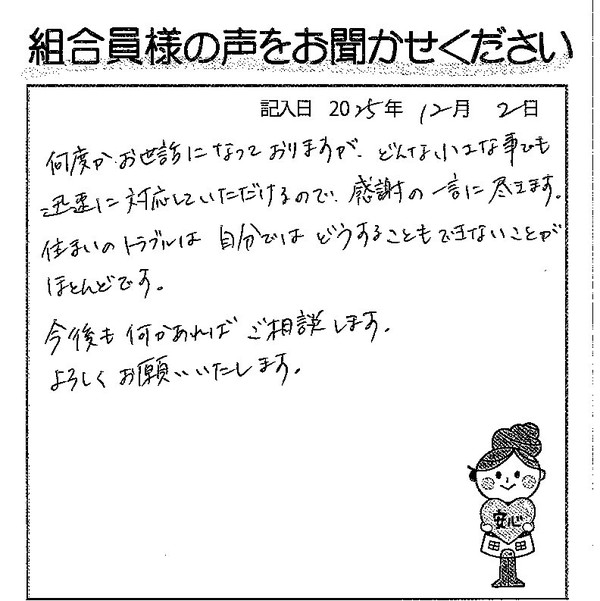 組合員様の声をお聞かせください
記入日 2025年 12月 2日
何度かお世話になっておりますが、どんな小さな事でも
迅速に対応していただけるので、感謝の一言に尽きます。
住まいのトラブルは自分ではどうすることもできないことが
ほとんどです。
今後も何かあればご相談します。
よろしくお願いいたします。
安心